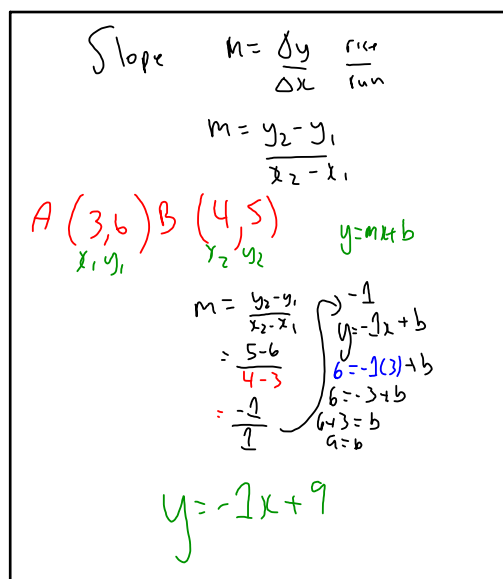 Slope m = Δy/Δx rise/run
m = y₂ - y₁ / x₂ - x₁
A (3,6) B (4,5)
x₁ y₁ x₂ y₂
y=mx+b
m = y₂-y₁ / x₂-x₁
= 5-6 / 4-3
= -1 / 1
-1
y=-1x+b
6=-1(3)+b
6=-3+b
6+3=b
9=b
y=-1x+9